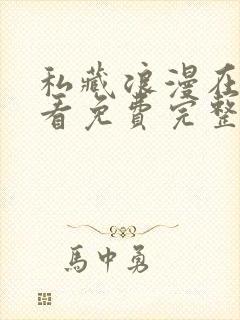 私藏浪漫在
看免費完整
馬中勇